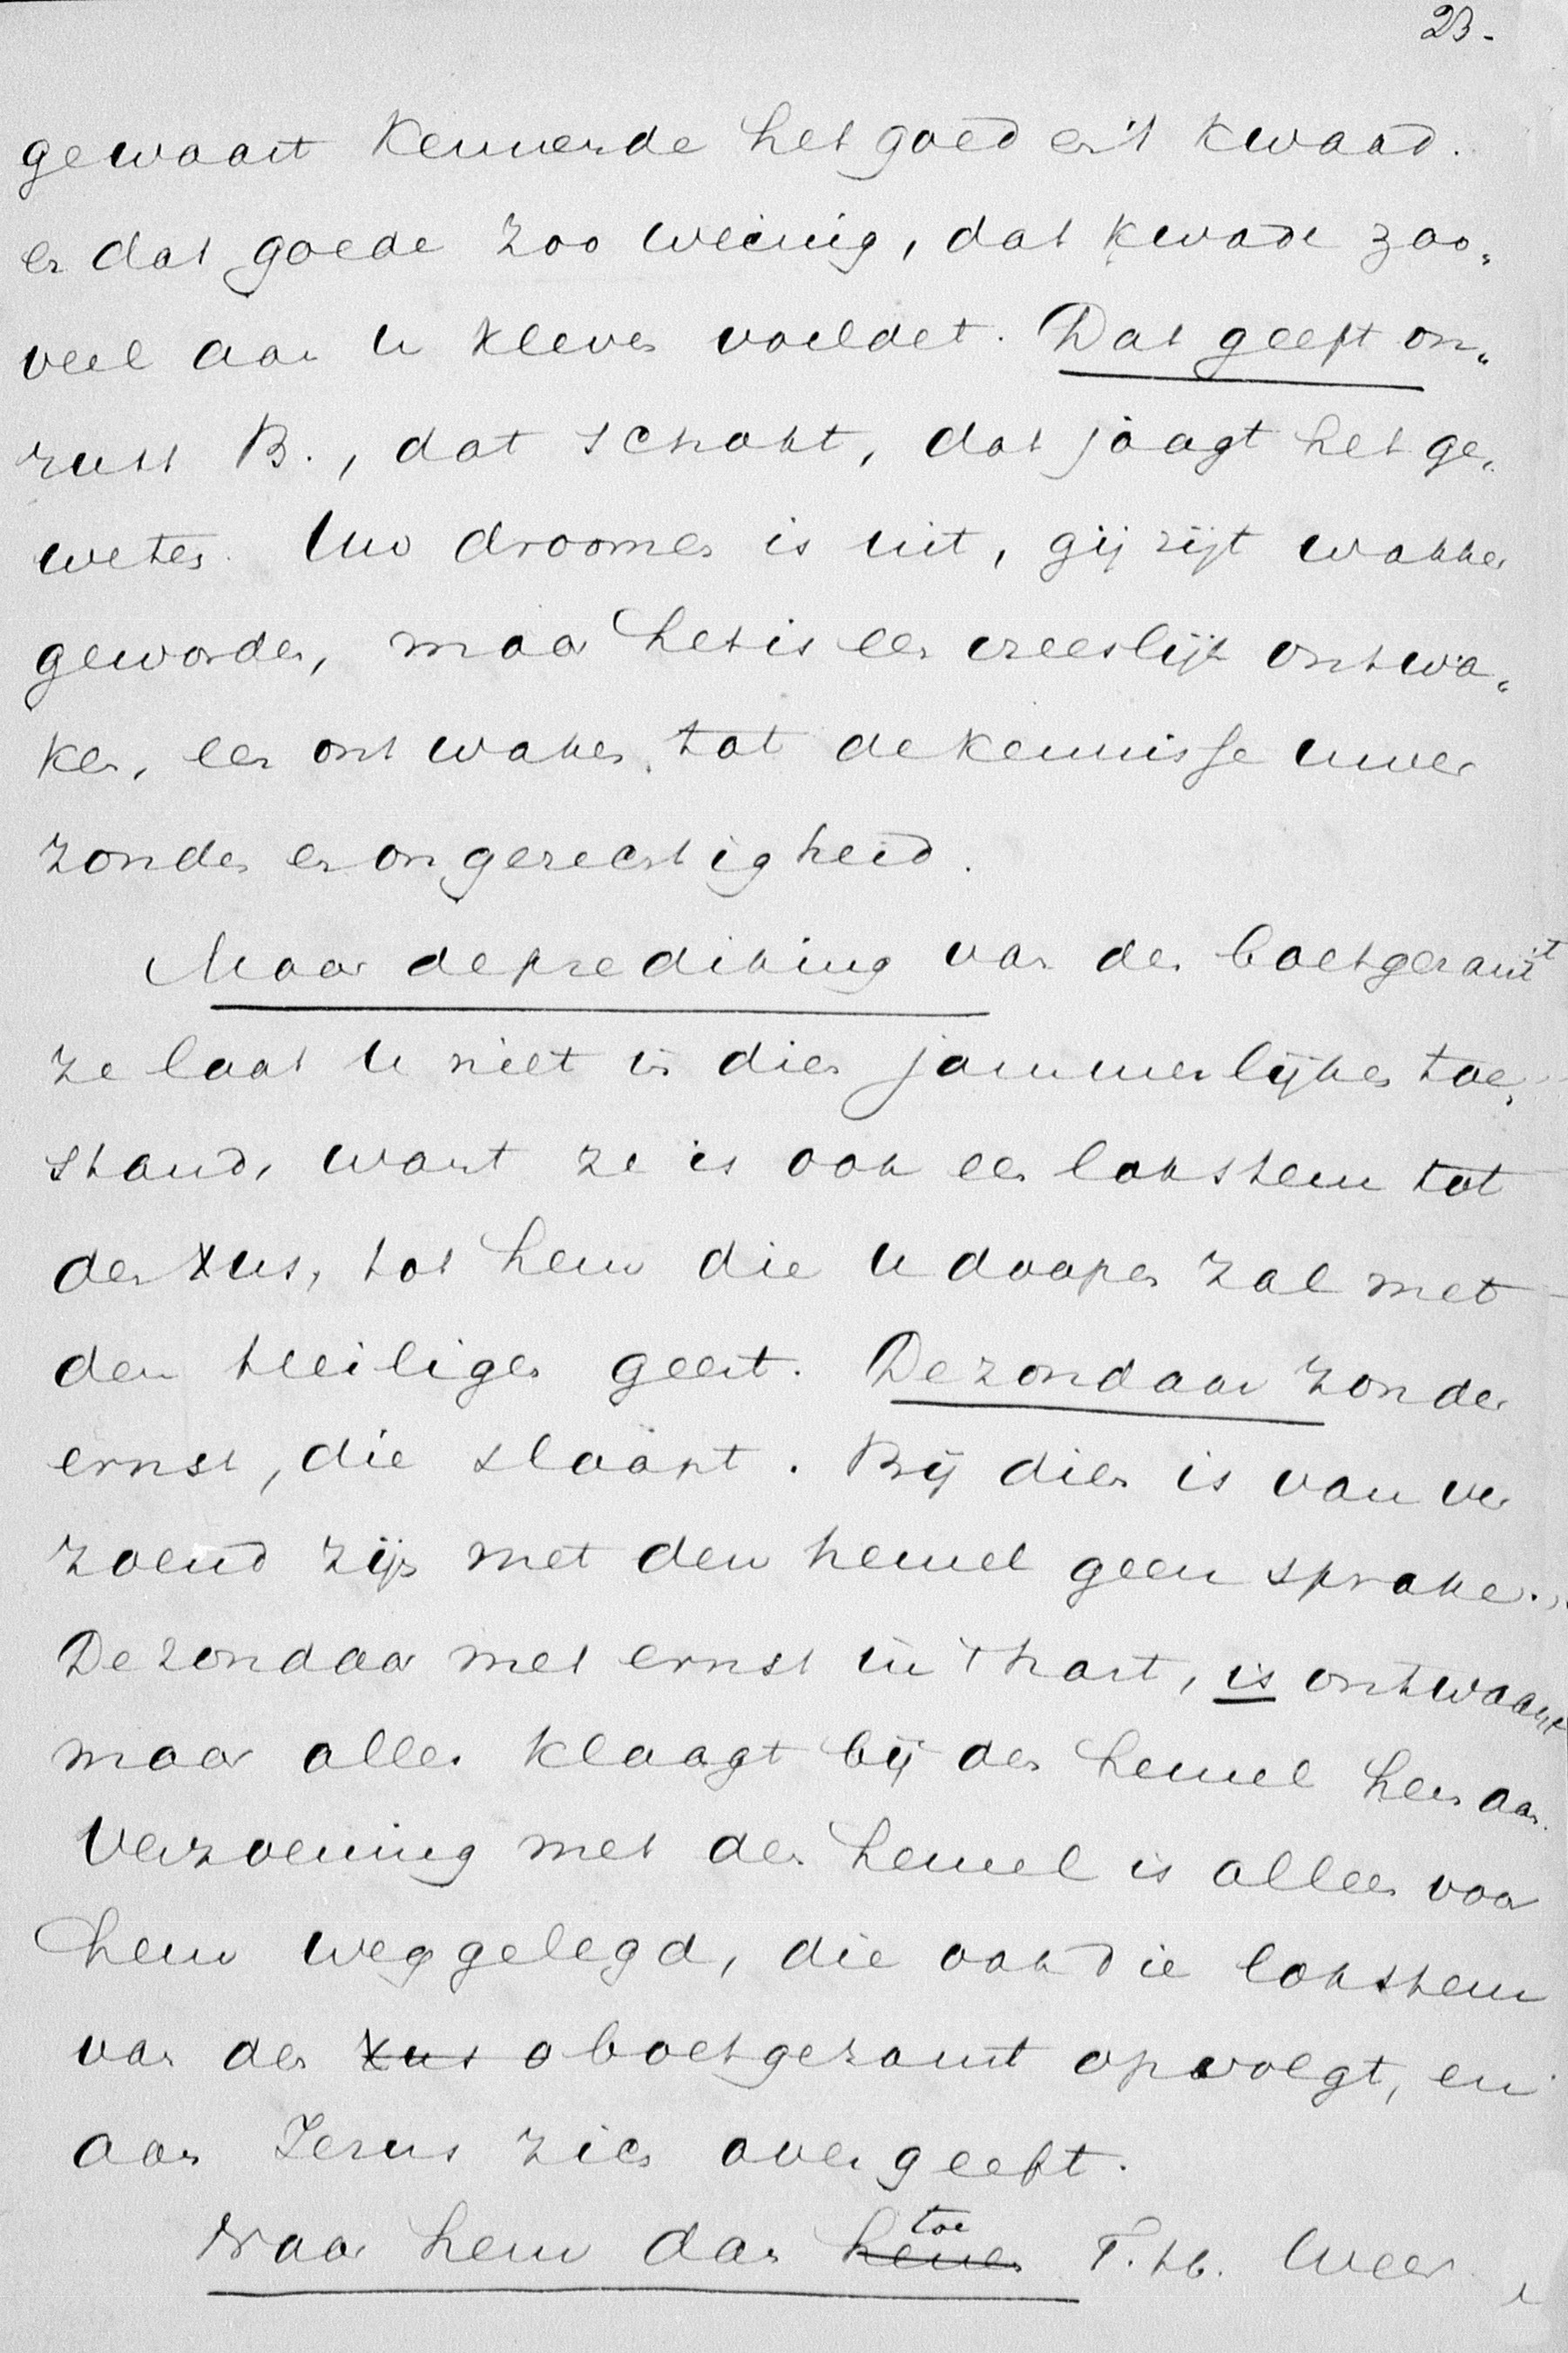 23.
gewaart kennende het goed en 't kwaad.
en dat goede zoo weinig, dat kwade zoo„
veel aan u kleven voeldet. Dat geeft on„
rust B., dat schokt, dat jaagt het ge„
weten. Uw droomen is uit, gij zijt wakker
geworden, maar het is een vreeslijk ontwa„
ken, een ontwaken tot de kennisse uwer
zonden en ongerechtigheid.
Maar de prediking van den boetgezant
ze laat u niet in dien jammerlijken toe„
stand, want ze is ook een lokstem tot
den Xus, tot hem die u doopen zal met
den Heiligen geest. De zondaar zonder
ernst, die slaapt. Bij dien is van ver
zoend zijn met den hemel geen sprake.
De zondaar met ernst in 't hart, is ontwaakt
maar alles klaagt bij den hemel hem aan.
Verzoening met den hemel is alleen voor
hem weggelegd, die ook die lokstem
van den Xus boetgezant opvolgt, en
aan Jezus zich overgeeft.
Naar hem dan henen toe T. h. Weer